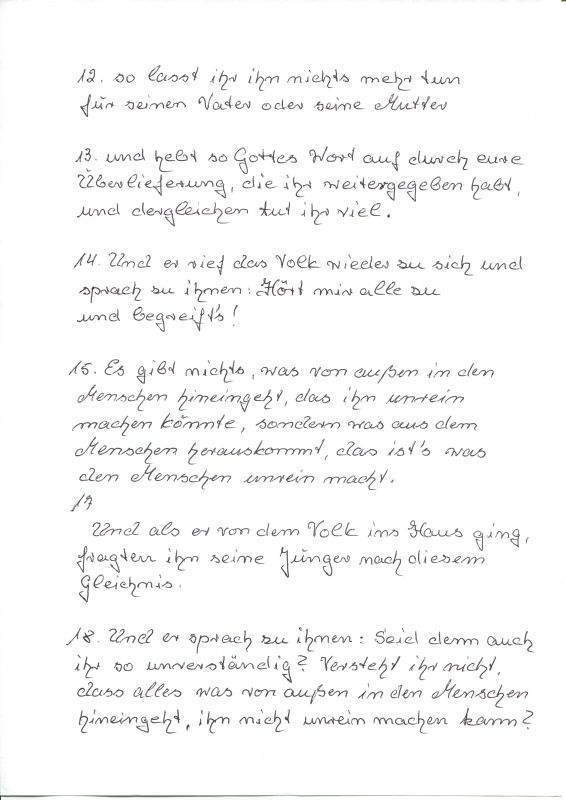 12. so lasst ihr ihn nichts mehr tun
für seinen Vater oder seine Mutter
13. und hebt so Gottes Wort auf durch eure
Überlieferung, die ihr weitergegeben habt,
und dergleichen tut ihr viel.
14. Und er rief das Volk wieder zu sich und
sprach zu ihnen: Hört mir alle zu
und begreift's!
15. Es gibt nichts, was von außen in den
Menschen hineingeht, das ihn unrein
machen könnte, sondern was aus dem
Menschen herauskommt, das ist's was
den Menschen unrein macht.
17
Und als er von dem Volk ins Haus ging,
fragten ihn seine Jünger nach diesem
Gleichnis.
18. Und er sprach zu ihnen: Seid denn auch
ihr so unverständig? Versteht ihr nicht,
dass alles was von außen in den Menschen
hineingeht, ihn nicht unrein machen kann?